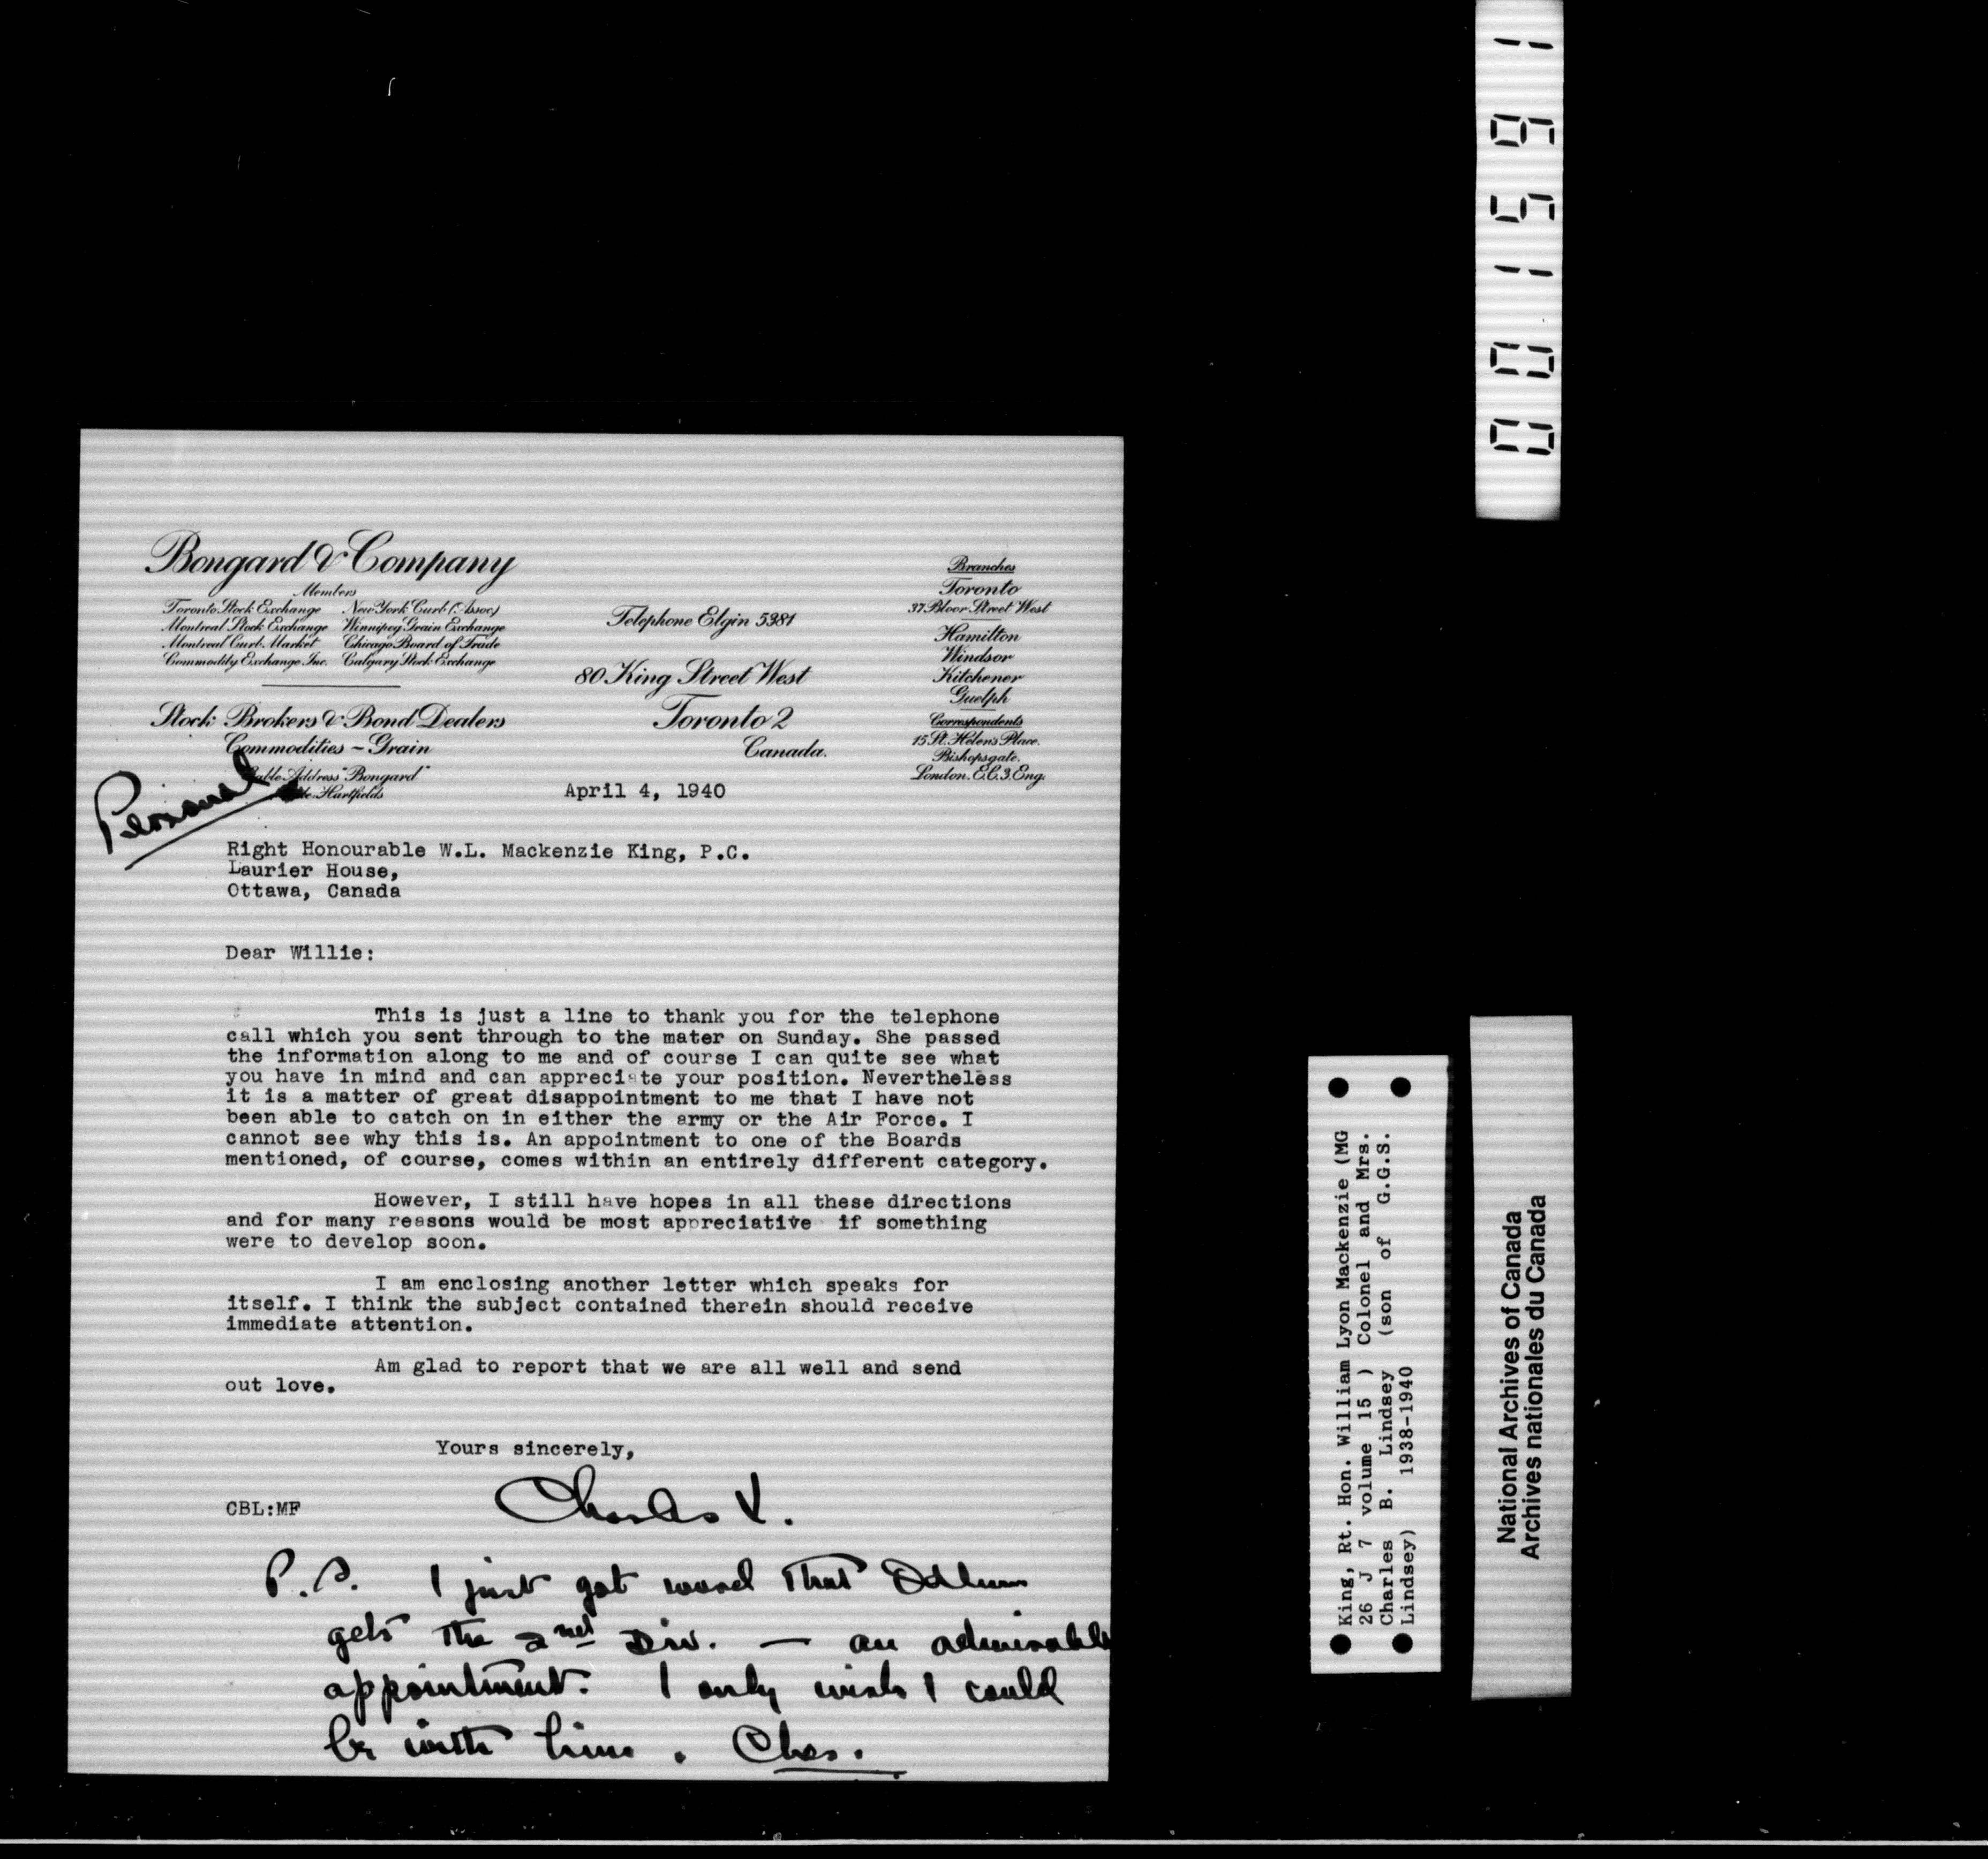 Bongard & Company
Members
Toronto Stock Exchange New York Curb (Assoc)
Montreal Stock Exchange Winnipeg Grain Exchange
Montreal Curb Market Chicago Board of Trade
Commodity Exchange Inc. Calgary Stock Exchange
Stock Brokers & Bond Dealers
Commodities - Grain
Cable Address "Bongard"
Hartfields
Personal
Telephone Elgin 5381
80 King Street West
Toronto 2
Canada.
Branches
Toronto
37 Bloor Street West
Hamilton
Windsor
Kitchener
Guelph
Correspondents
15 St. Helens Place.
Bishopsgate.
London. E.C.3. Eng.
April 4, 1940
Right Honourable W.L. Mackenzie King, P.C.
Laurier House,
Ottawa, Canada
Dear Willie:
This is just a line to thank you for the telephone
call which you sent through to the mater on Sunday. She passed
the information along to me and of course I can quite see what
you have in mind and can appreciate your position. Nevertheless
it is a matter of great disappointment to me that I have not
been able to catch on in either the army or the Air Force. I
cannot see why this is. An appointment to one of the Boards
mentioned, of course, comes within an entirely different category.
However, I still have hopes in all these directions
and for many reasons would be most appreciative if something
were to develop soon.
I am enclosing another letter which speaks for
itself. I think the subject contained therein should receive
immediate attention.
Am glad to report that we are all well and send
out love.
Yours sincerely,
Charles
CBL:MF
P.S. I just got word that Odlum
gets the 2nd Div. — an admirable
appointment. I only wish I could
be with him. Chas.
001591
King, Rt. Hon. William Lyon Mackenzie (MG
26 J 7 volume 15 ) Colonel and Mrs.
Charles B. Lindsey (son of G.G.S.
Lindsey) 1938-1940
National Archives of Canada
Archives nationales du Canada